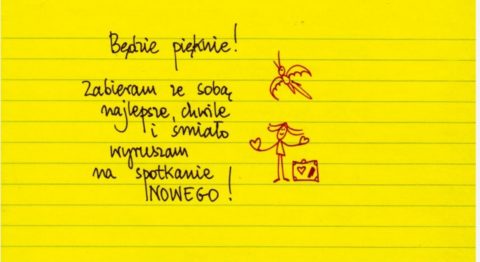 Będzie pięknie!
Zabieram ze sobą
najlepsze, chwile
i śmiało
wyruszam
na spotkanie
NOWEGO!